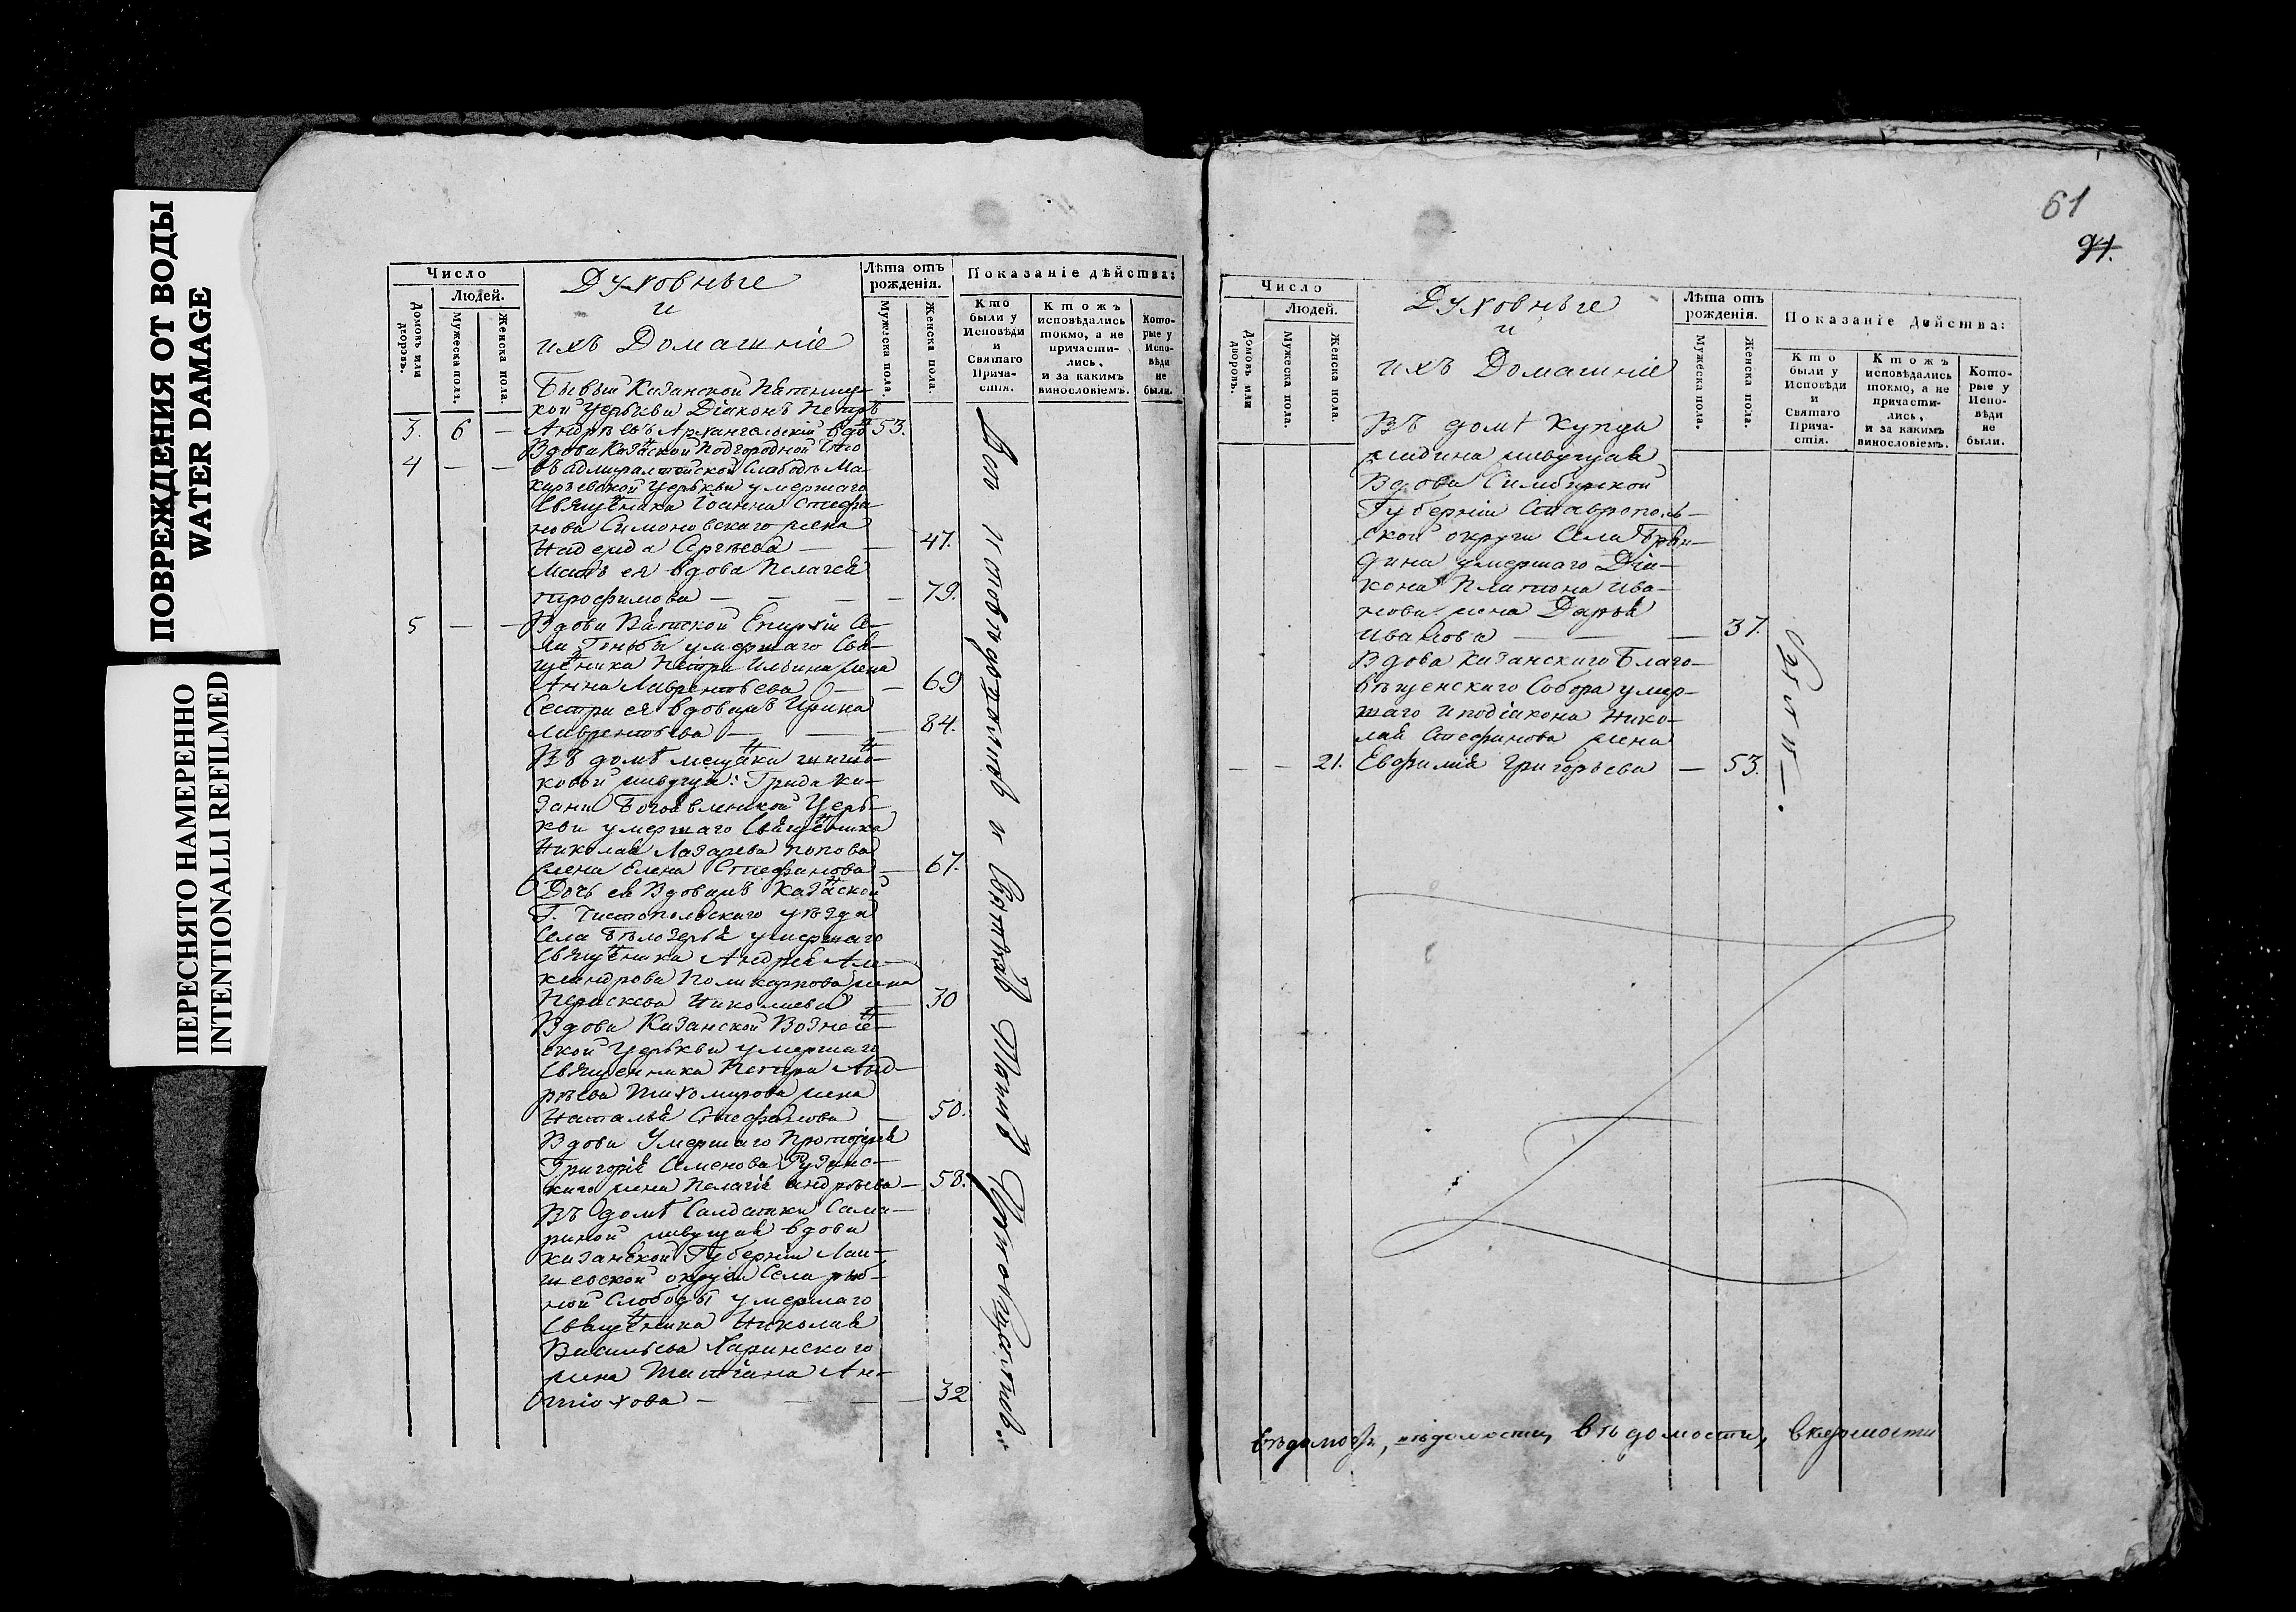 ПОВРЕЖДЕНИЯ ОТ ВОДЫ
WATER DAMAGE
ПЕРЕСНЯТО НАМЕРЕННО
INTENTIONALLI REFILMED
Число
Людей.
Домовъ или дворовъ.
Мужеска пола.
Женска пола.
Духовные
и
ихъ Домашніе
Лѣта отъ рожденія.
Мужеска пола.
Женска пола.
Показаніе дѣйства:
Кто были у Исповѣди и Святаго Прича-стія.
Ктожъ исповѣдались токмо, а не причасти-лись, и за какимъ винословіемъ.
Кото-рые у Испо-вѣди не были.
Бывшій Казанской
кой Церькви Діяконъ Петръ
3. 6 — Андрѣевъ Архангельскій вдовъ 53.
Вдова Казанской Подгородной что
4 — — въ адмиралтейской Слабодѣ Ма-
карьевской Церькви умершаго
Священника Іоанна Стефа-
нова Симоновскаго жена
Надежда Сергѣева — — 47.
Мать ея вдова Пелагея
трофимова — — — — 79.
5 — — Вдова Вятской Епархіи Се-
ла умершаго Свя-
щенника Петра Ильина жена
Анна Лаврентьева — — 69
Сестра ея вдова жъ Ирина
Лаврентьева — — — 84.
Въ домѣ мещанки
ковой живущая: Града Ка-
зани Богоявленской Церь-
кви умершаго Священника
Николая Лазарева попова
жена Елена Стефанова — 67.
Дочь ея Вдова жъ Казанской
Г. Чистопольскаго уѣзда
Села Бѣлозерья умершаго
Священника Андрея Але-
ксандрова Поликарпова жена
Параскева Николаева — 30
Вдова Казанской Вознесен-
ской Церькви умершаго
Священника Петра Анд-
рѣева Тихомирова жена
Наталья Стефанова — 50.
Вдова Умершаго Протоіерея
Григорія Семенова
каго жена Пелагія андрѣева — 58.
Въ домѣ Салдатки Сама-
риной живущая вдова
казанской Губерніи Лаи-
шевской округи Села рыб-
ной Слободы умершаго
Священника Николая
Васильева Харинскаго
жена Татіана Ан-
тіохова — — — — 32
Вси исповѣдались и Святыхъ Таинъ Пріобщились.
61
91.
Число
Людей.
Домовъ или дворовъ.
Мужеска пола.
Женска пола.
Духовные
и
ихъ Домашніе
Лѣта отъ рожденія.
Мужеска пола.
Женска пола.
Показаніе Действа:
Кто были у Исповѣди и Святаго Прича-стія.
Ктожъ исповѣдались токмо, а не причасти-лись, и за какимъ винословіемъ.
Кото-рые у Испо-вѣди не были.
Въ домѣ купца
живущая
Вдова Симбирской
Губерніи Ставрополь-
ской округи Села
дина умершаго Дія-
кона Платона Ива-
нова жена Дарья
Иванова — — — 37.
Вдова казанскаго Благо-
вѣщенскаго Собора умер-
шаго Иподіакона Нико-
лая Стефанова жена
— — 21. Евфимія Григорьева — 53.
вѣдомости, вѣдомости, вѣдомости, вѣдомости